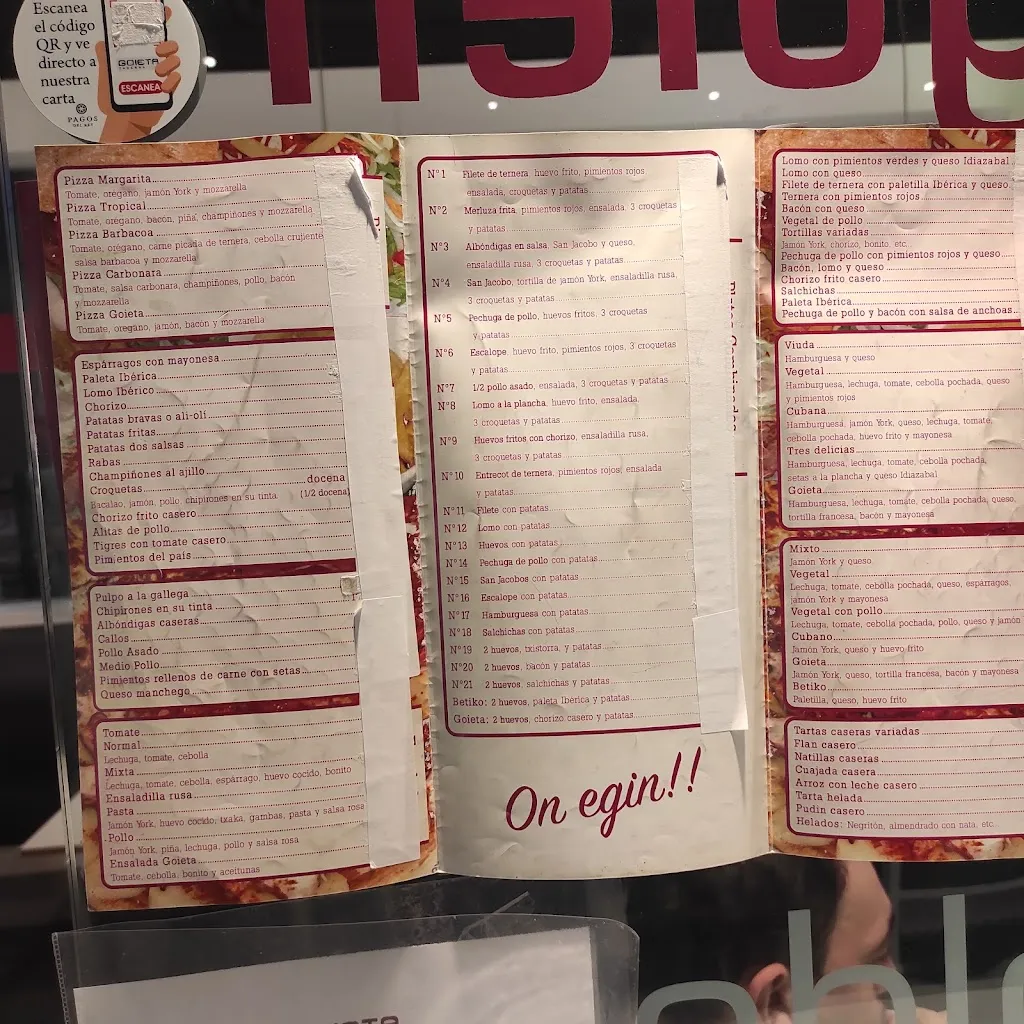 Escanea
el código
QR y ve
directo a
nuestra
carta
GOIETA
ESCANEA
PAGOS
DEL REY
Pizza Margarita
Tomate, orégano, jamón York y mozzarella
Pizza Tropical
Tomate, orégano, bacón, piña, champiñones y mozzarella
Pizza Barbacoa
Tomate, orégano, carne picada de ternera, cebolla crujiente
salsa barbacoa y mozzarella
Pizza Carbonara
Tomate, salsa carbonara, champiñones, pollo, bacón
y mozzarella
Pizza Goieta
Tomate, orégano, jamón, bacón y mozzarella
Espárragos con mayonesa
Paleta Ibérica
Lomo Ibérico
Chorizo
Patatas bravas o ali-oli
Patatas fritas
Patatas dos salsas
Rabas
Champiñones al ajillo
Croquetas docena
Bacalao, jamón, pollo, chipirones en su tinta (1/2 docena)
Chorizo frito casero
Alitas de pollo
Tigres con tomate casero
Pimientos del país
Pulpo a la gallega
Chipirones en su tinta
Albóndigas caseras
Callos
Pollo Asado
Medio Pollo
Pimientos rellenos de carne con setas
Queso manchego
Tomate
Normal
Lechuga, tomate, cebolla
Mixta
Lechuga, tomate, cebolla, espárrago, huevo cocido, bonito
Ensaladilla rusa
Pasta
Jamón York, huevo cocido, txaka, gambas, pasta y salsa rosa
Pollo
Jamón York, piña, lechuga, pollo y salsa rosa
Ensalada Goieta
Tomate, cebolla, bonito y aceitunas
Nº1 Filete de ternera huevo frito, pimientos rojos
ensalada, croquetas y patatas
Nº2 Merluza frita, pimientos rojos, ensalada, 3 croquetas
y patatas
Nº3 Albóndigas en salsa, San Jacobo y queso,
ensaladilla rusa, 3 croquetas y patatas
Nº4 San Jacobo, tortilla de jamón York, ensaladilla rusa,
3 croquetas y patatas
Nº5 Pechuga de pollo, huevos fritos, 3 croquetas
y patatas
Nº6 Escalope, huevo frito, pimientos rojos, 3 croquetas
y patatas
Nº7 1/2 pollo asado, ensalada, 3 croquetas y patatas
Nº8 Lomo a la plancha, huevo frito, ensalada,
3 croquetas y patatas
Nº9 Huevos fritos con chorizo, ensaladilla rusa,
3 croquetas y patatas
Nº10 Entrecot de ternera, pimientos rojos, ensalada
y patatas
Nº11 Filete con patatas
Nº12 Lomo con patatas
Nº13 Huevos con patatas
Nº14 Pechuga de pollo con patatas
Nº15 San Jacobos con patatas
Nº16 Escalope con patatas
Nº17 Hamburguesa con patatas
Nº18 Salchichas con patatas
Nº19 2 huevos, txistorra, y patatas
Nº20 2 huevos, bacón y patatas
Nº21 2 huevos, salchichas y patatas
Betiko: 2 huevos, paleta Ibérica y patatas
Goieta: 2 huevos, chorizo casero y patatas
On egin!!
Lomo con pimientos verdes y queso Idiazabal
Lomo con queso
Filete de ternera con paletilla Ibérica y queso
Ternera con pimientos rojos
Bacón con queso
Vegetal de pollo
Tortillas variadas
Jamón York, chorizo, bonito, etc.
Pechuga de pollo con pimientos rojos y queso
Bacón, lomo y queso
Chorizo frito casero
Salchichas
Paleta Ibérica
Pechuga de pollo y bacón con salsa de anchoas
Viuda
Hamburguesa y queso
Vegetal
Hamburguesa, lechuga, tomate, cebolla pochada, queso
y pimientos rojos
Cubana
Hamburguesa, jamón York, queso, lechuga, tomate,
cebolla pochada, huevo frito y mayonesa
Tres delicias
Hamburguesa, lechuga, tomate, cebolla pochada,
setas a la plancha y queso Idiazabal
Goieta
Hamburguesa, lechuga, tomate, cebolla pochada, queso,
tortilla francesa, bacón y mayonesa
Mixto
Jamón York y queso
Vegetal
Lechuga, tomate, cebolla pochada, queso, espárragos,
jamón York y mayonesa
Vegetal con pollo
Lechuga, tomate, cebolla pochada, pollo, queso y jamón
Cubano
Jamón York, queso y huevo frito
Goieta
Jamón York, queso, tortilla francesa, bacón y mayonesa
Betiko
Paletilla, queso, huevo frito
Tartas caseras variadas
Flan casero
Natillas caseras
Cuajada casera
Arroz con leche casero
Tarta helada
Pudin casero
Helados: Negritón, almendrado con nata, etc.